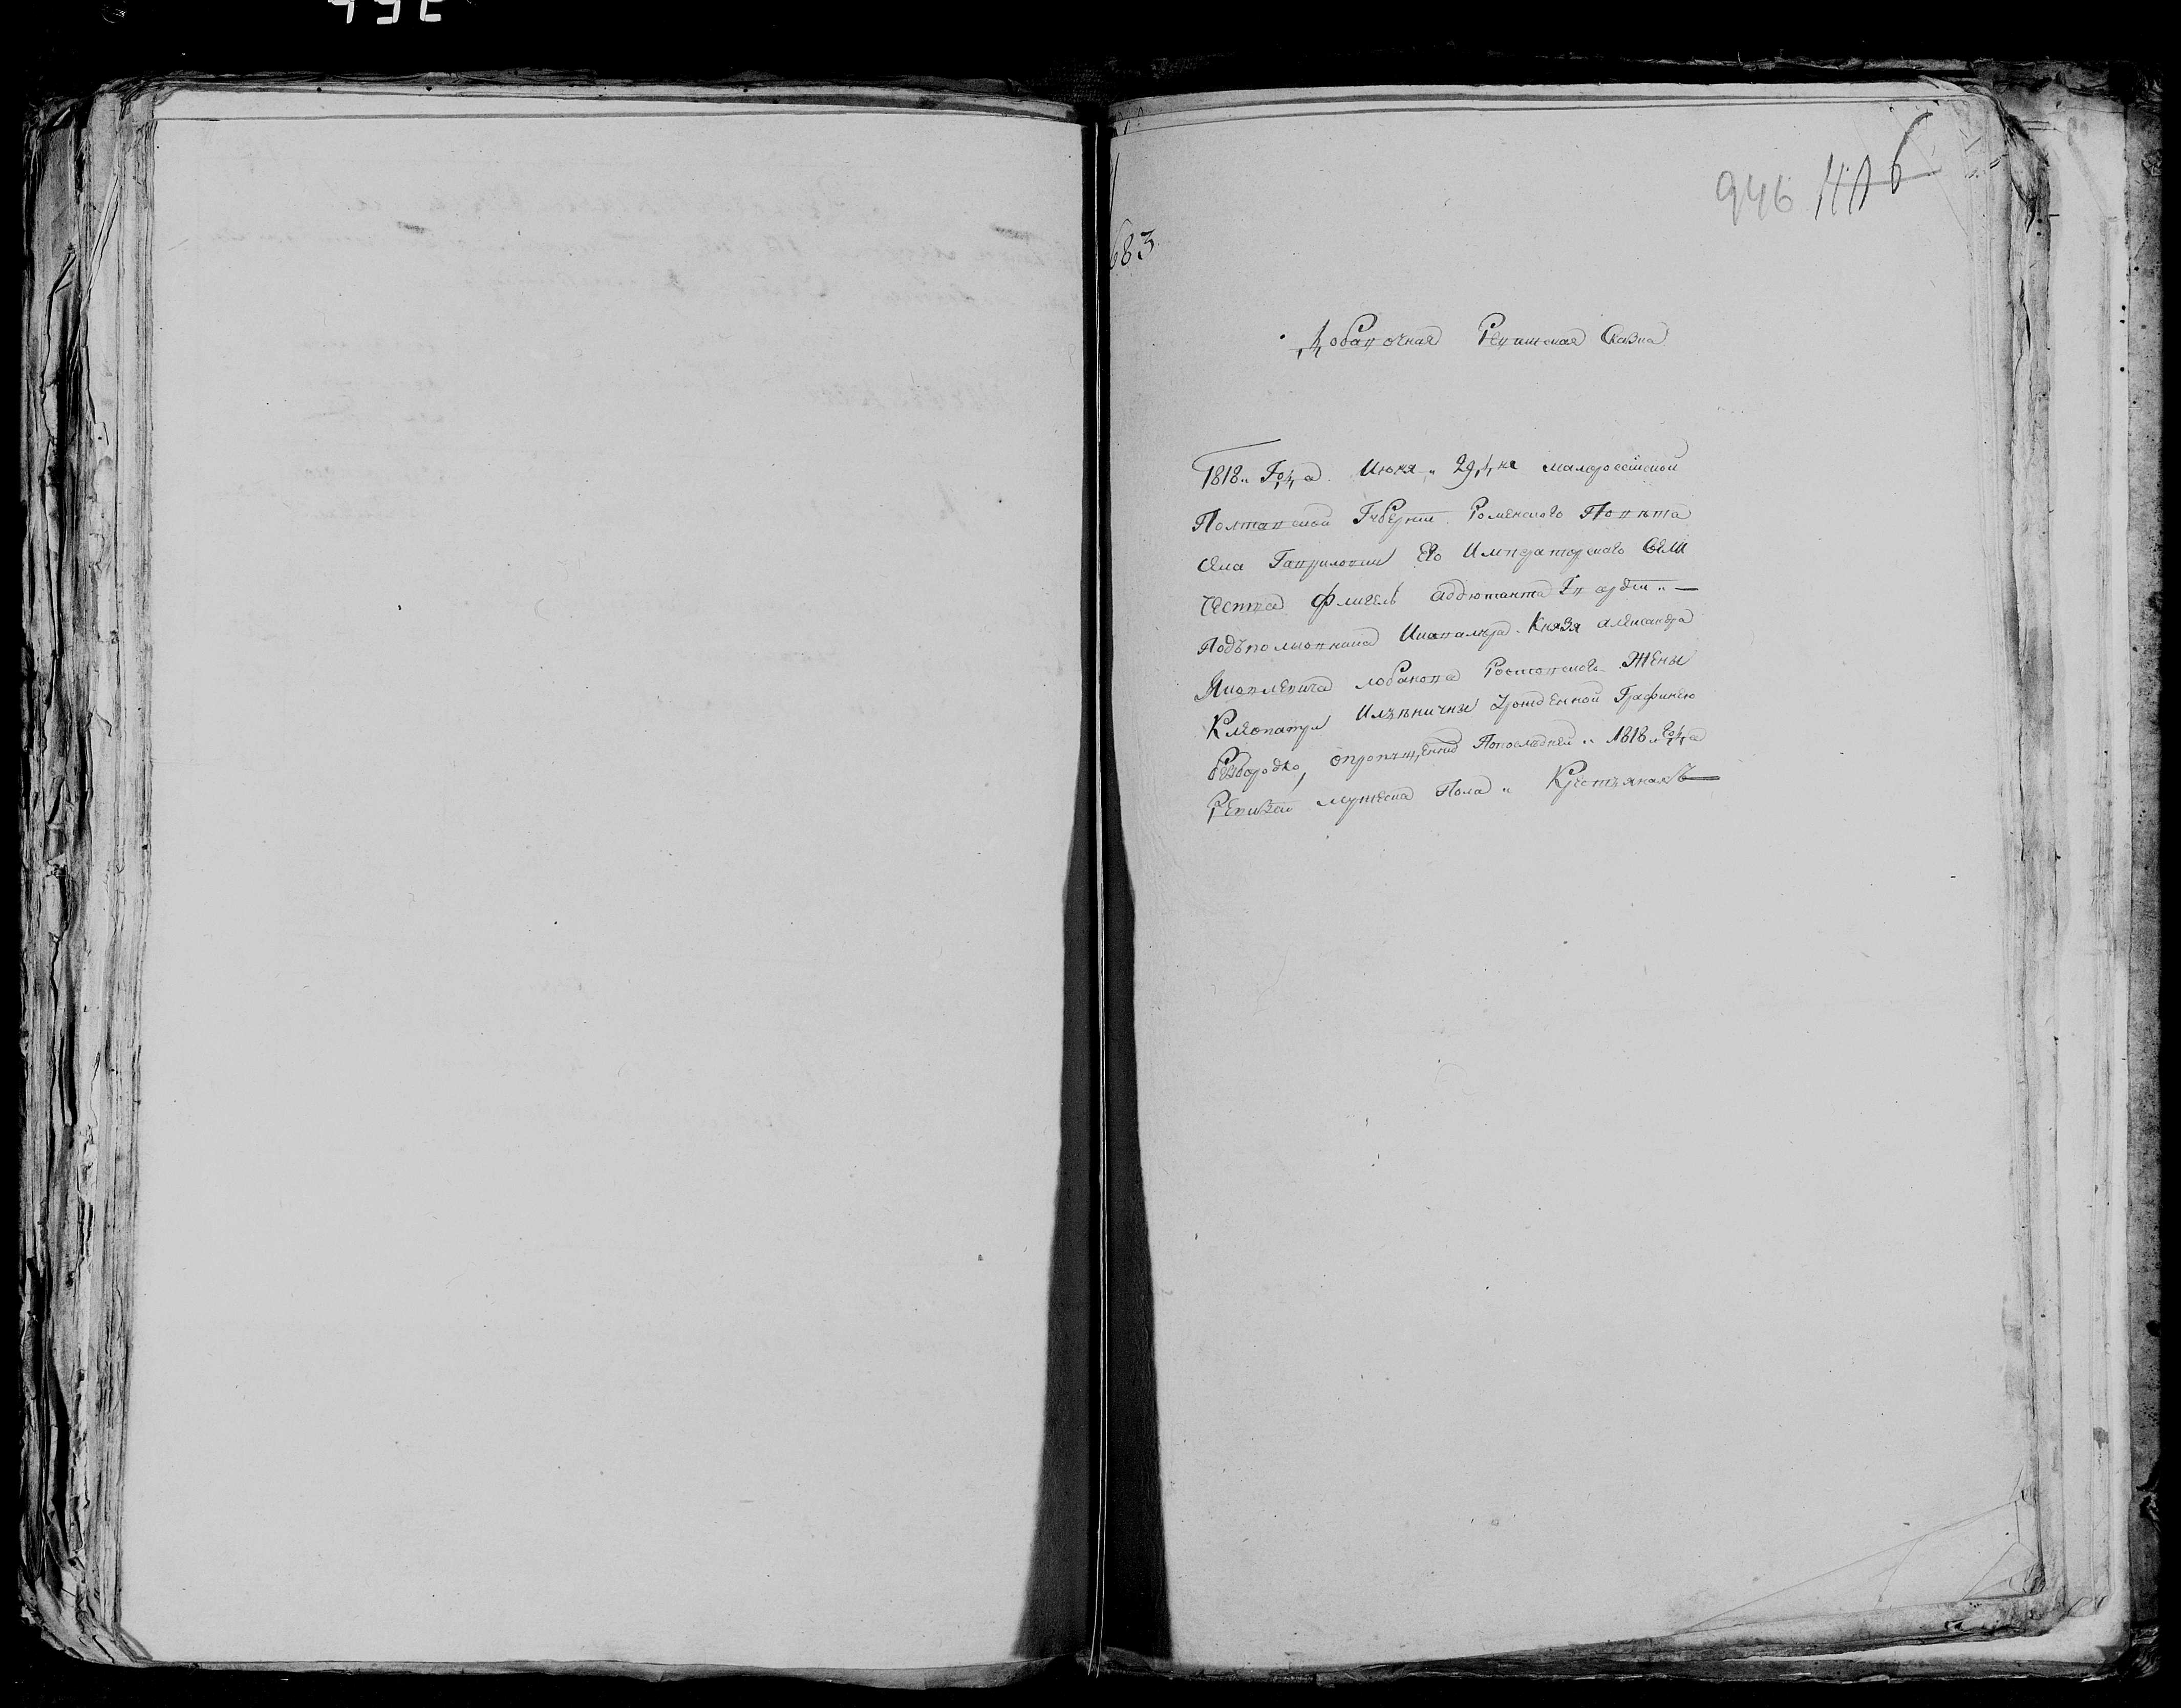 946 1106
683
Добавочная Ревижская Сказка
1818„ Года Июня „ 29 дня малороссійской
Полтавской Губерніи Роменского Повѣта
села Гавриловки Его Императорского Вели
чества Флигель аддютанта Гвардіи „ —
Подъполковника И Кавалѣра Князя Александра
Яковлевича Лобанова Ростовского Жены
Клеопатры Ильиничны Урожденной Графинею
безбородко, опропущенно Попоследней „ 1818 „ года
Ревизіи мужеска Пола „ Крестьянахъ